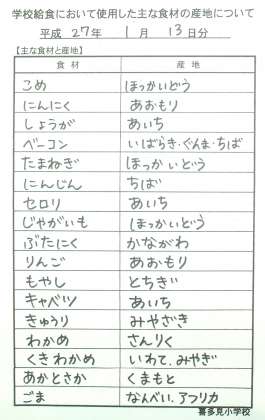 学校給食において使用した主な食材の産地について
平成 27年 1月 13日分
【主な食材と産地】
食材 産地
こめ ほっかいどう
にんにく あおもり
しょうが あいち
ベーコン いばらき・ぐんま・ちば
たまねぎ ほっかいどう
にんじん ちば
セロリ あいち
じゃがいも ほっかいどう
ぶたにく かながわ
りんご あおもり
もやし とちぎ
キャベツ あいち
きゅうり みやざき
わかめ さんりく
くきわかめ いわて.みやぎ
あかとさか くまもと
ごま なんべい.アフリカ
喜多見小学校